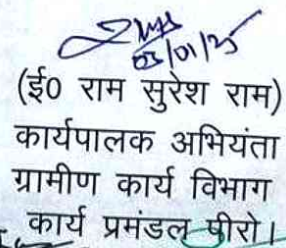 03/01/25
(ई0 राम सुरेश राम)
कार्यपालक अभियंता
ग्रामीण कार्य विभाग
कार्य प्रमंडल पीरो।